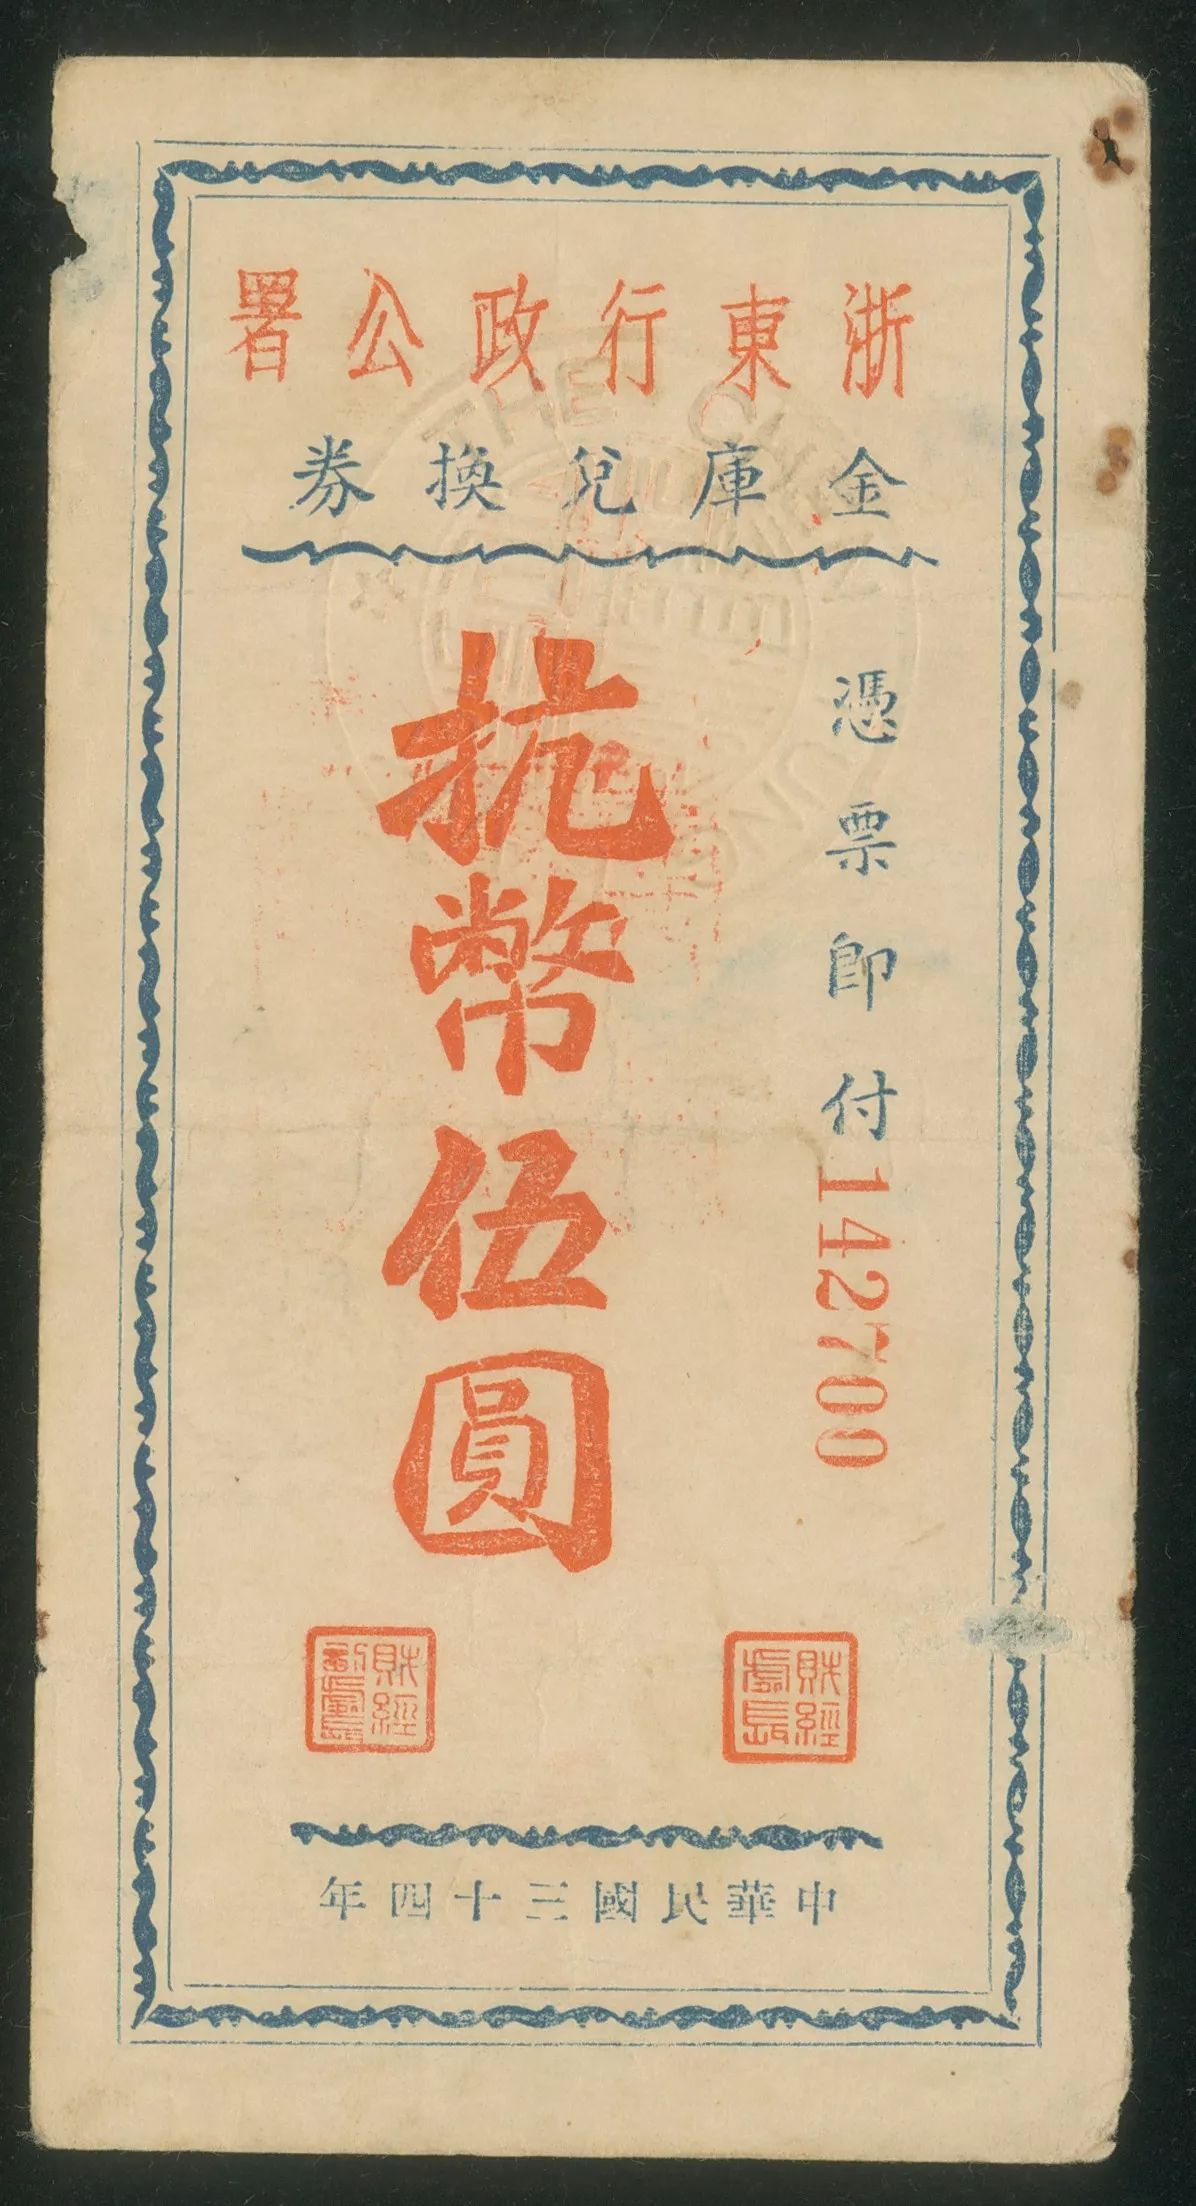 浙東行政公署
金庫兌換券
憑票即付
142700
抗幣伍圓
財經處長
財經副處長
中華民國三十四年